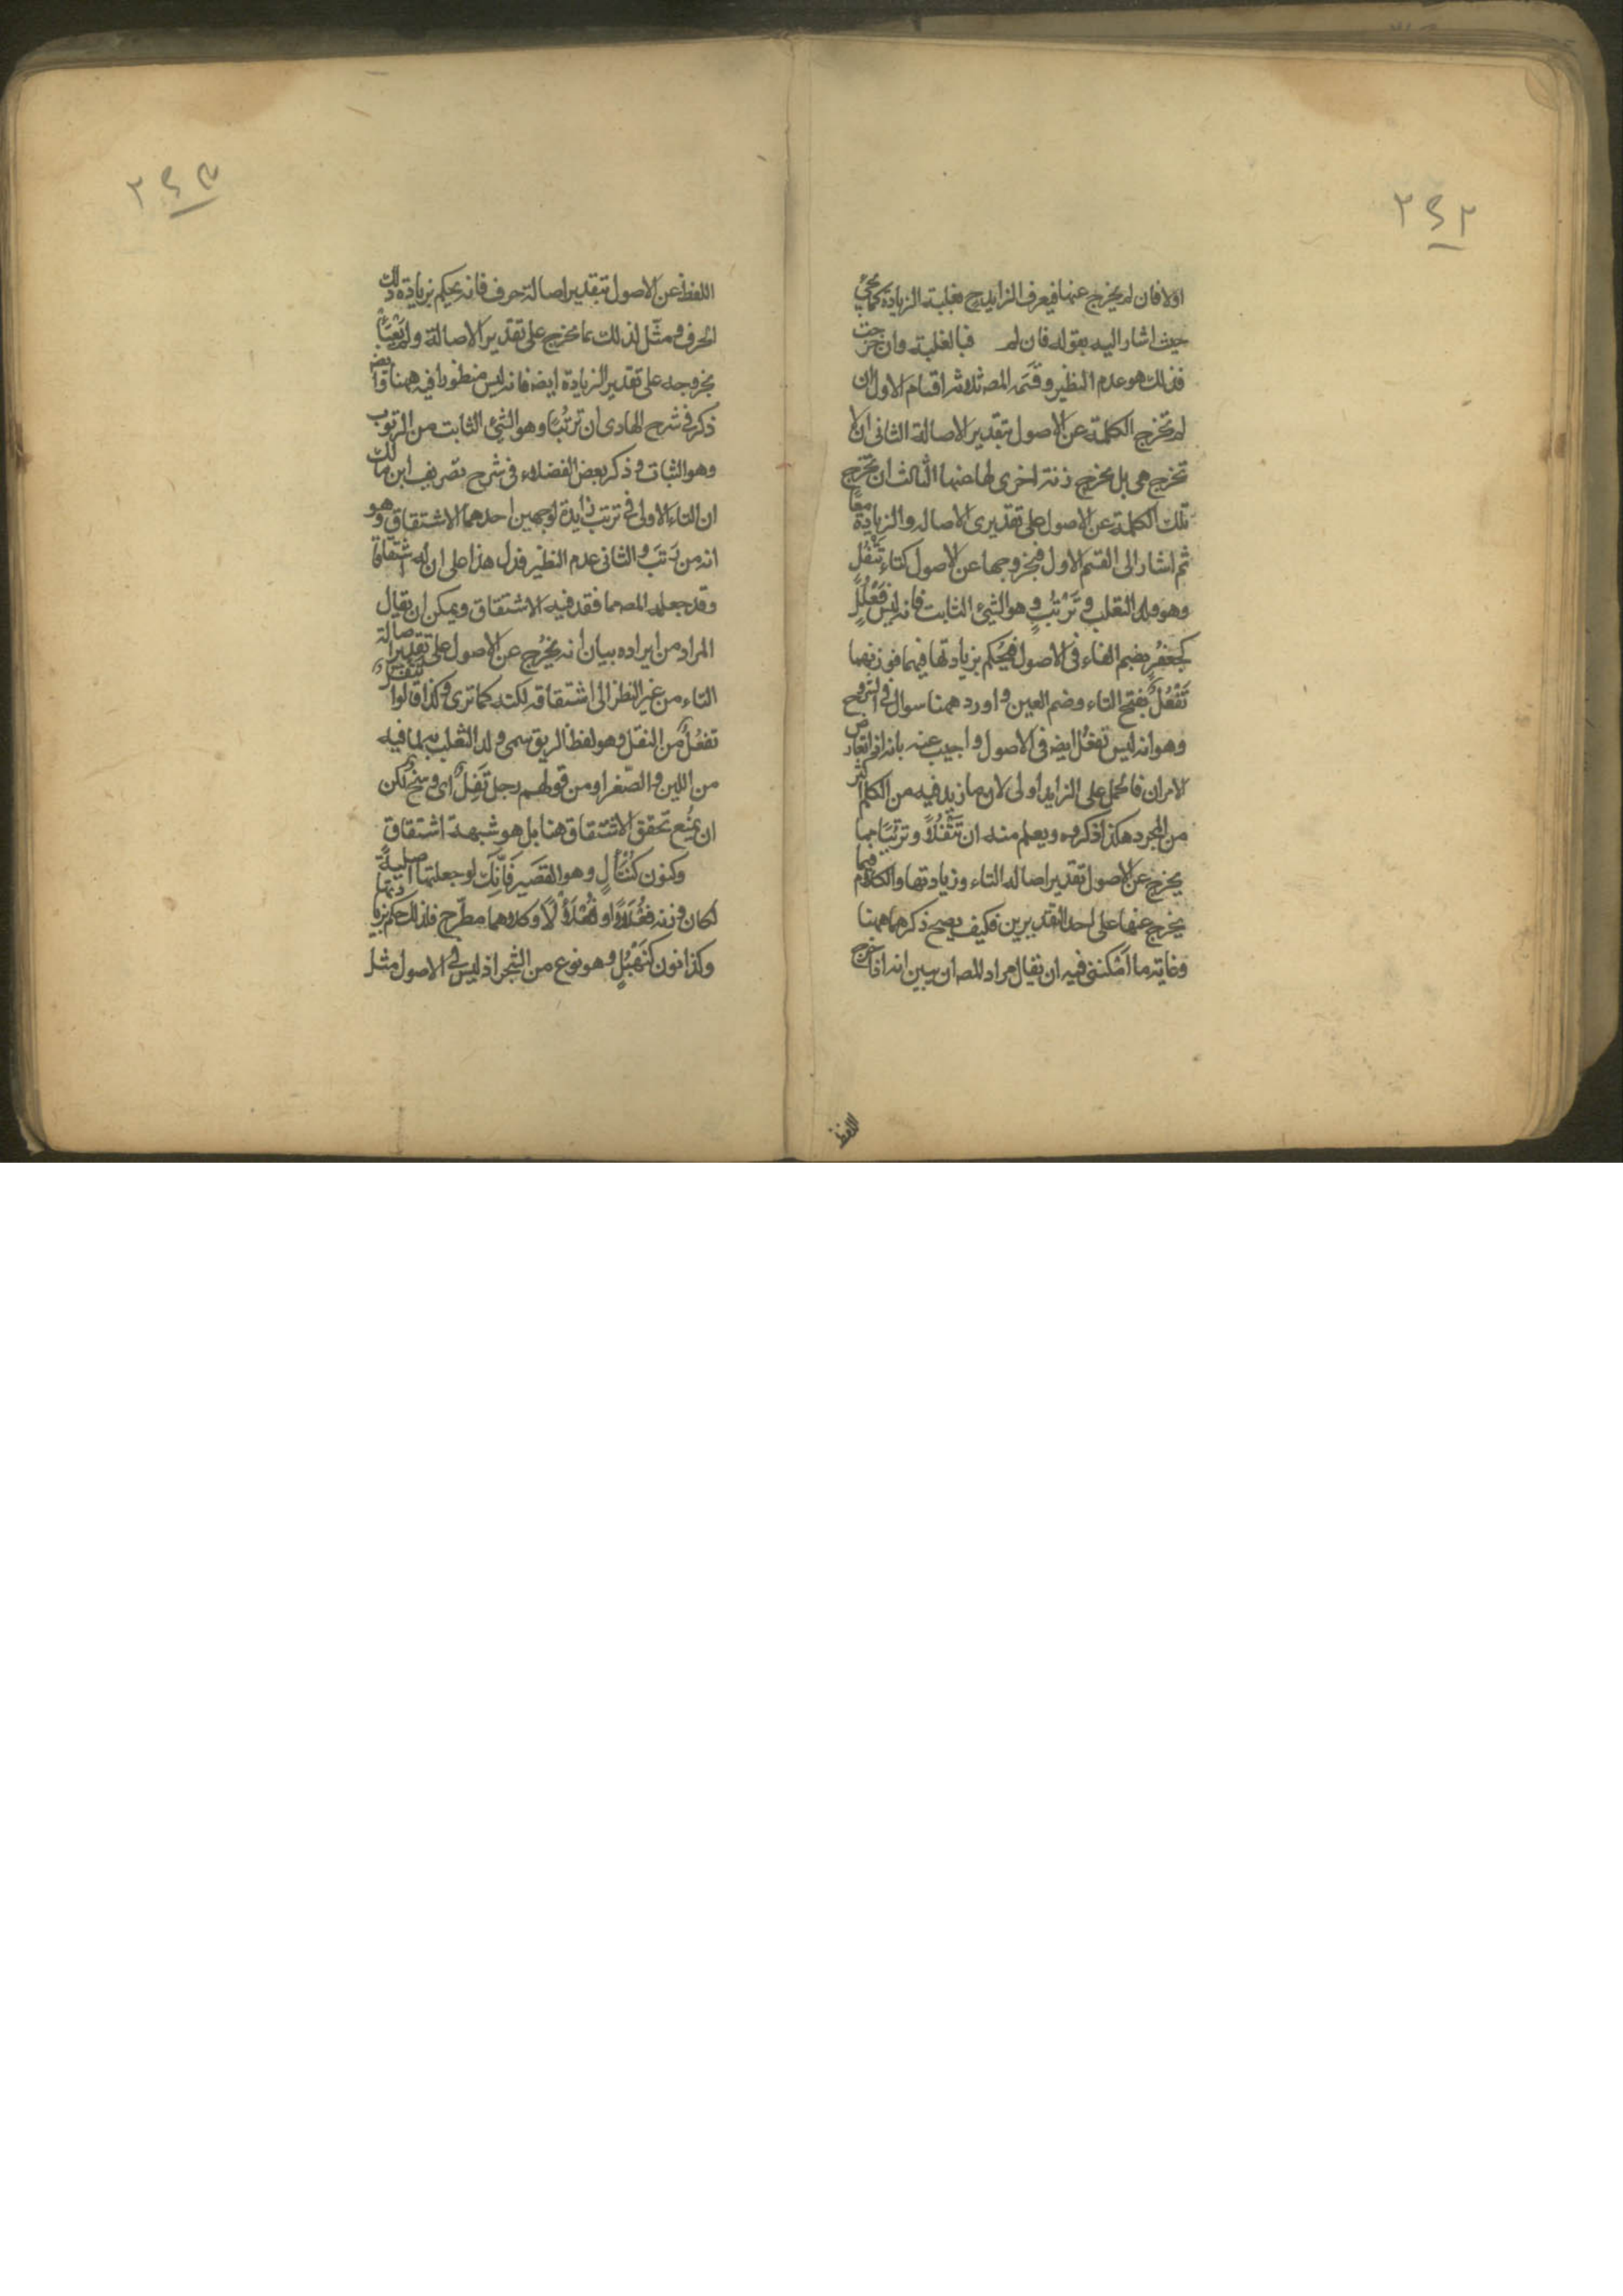 ٢٤٢
اولا فان لم يخرج عنها فيعرف الزايد ح بغلبة الزيادة كما يجئ
حيث اشار اليه بقوله فان لم فبالغلبة وان خرجت
فذلك هو عدم النظير وقسمه المصه ثلاثه اقسام الاول ان
لم تخرج الكلمة عن الاصول بتقدير الاصالة الثانى ان لا
تخرج هى بل يخرج زنة اخرى لها عنها الثالث ان تخرج
تلك الكلمة عن الاصول على تقديرى الاصاله والزيادة معًا
ثم اشار الى القسم الاول فبخروجها عن الاصول كتاء تَتْفُلٍ
وهو ولد الثعلب وتَرْتُبٍ وهو الشيئ الثابت فانه ليس فَعْلُلٍ
كجَعْفُرٍ بضم الفاء فى الاصول فيحكم بزيادتها فيهما فوزنهما
تَفْعُلٌ بفتح التاء وضم العين واورد ههنا سوال فى الشروح
وهو انه ليس تفعُل ايضه فى الاصول واجيب عنه بانه اذا تعارض
الامران فالحمل على الزايد اولى لان ما زيد فيه من الكلم اكثر
من المجرد هكذا ذكروه ويعلم منه ان تَتْفُلًا وترتُبًا مما
يخرج عن الاصول بتقدير اصاله التاء وزيادتها والكلام فيما
يخرج عنها على احد التقديرين فكيف يصح ذكرهما ههنا
وغاية ما امكننى فيه ان يقال مراد المصه ان يبين انه اذا خرج
اللفظ
٢٤٣
اللفظ عن الاصول بتقدير اصالة حرف فانه يحكم بزيادة ذلك
الحرف ومثّل لذلك بما يخرج على تقدير الاصالة ولم يَعْبَأْ
بخروجه على تقدير الزيادة ايضه فانه ليس منظورا فيه ههنا وايضه
ذكر فى شرح الهادى ان ترتُبًا وهو الشئ الثابت من الرتوب
وهو الثبات وذكر بعض الفضلاء فى شرح تصريف ابن مالك
ان التاء الاولى فى ترتب زايدة لوجهين احدهما الاشتقاق وهو
انه من رَتَبَ والثانى عدم النظير فدل هذا على ان له اشتقاقا
وقد جعله المصه مما فقد فيه الاشتقاق ويمكن ان يقال
المراد من ايراده بيان انه يخرُج عن الاصول على تقدير اصالة
التاء من غير النظر الى اشتقاقه لكنه كما ترى وكذا قالوا تتفل
تفعُلٌ من التفل وهو لفظ الريق سمى ولد الثعلب به لما فيه
من اللين والصّغر او من قولهم رجل تَفِلٌ اى وسخٌ لكن
ان يمُنع تحقق الاشتقاق هنا بل هو شبهة اشتقاق
وكنون كُنْتَألٍ وهو القصير فَإنّك لو جعلتها اصليةً
لكان وزنه فُعْلَلًّا او فُعْتَلًّا وكلاهما مطّرح فلذلك حكم بزيادتها
وكذا نون كَنَهْبُلٍ وهو نوع من الشجر اذ ليس فى الاصول مثل